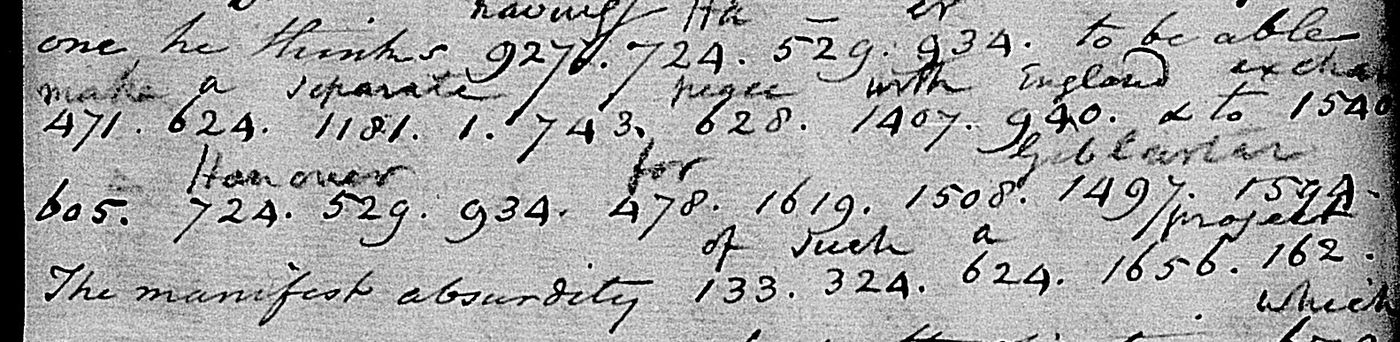 having Ha er
one he thinks 927. 724. 529. 934. to be able
make a separate peace with England
471. 624. 1181. 1. 743. 628. 1407. 940. & to 1540
Hanover for Gibraltar
605. 724. 529. 934. 478. 1619. 1508. 1497. 1594.
of such a project
The manifest absurdity 133. 324. 624. 1656. 162.
which